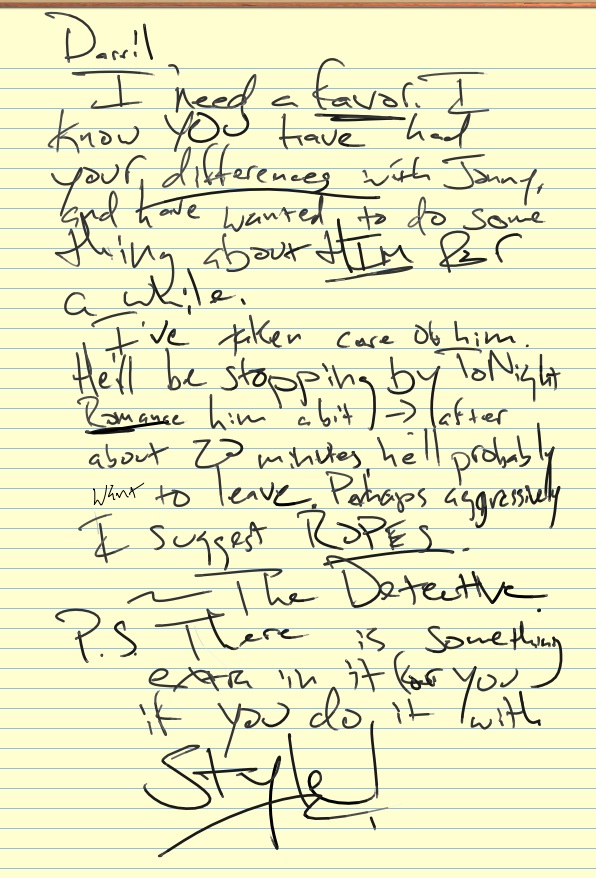 Darril,
I need a favor. I
know YOU have had
your differences with Jonny,
and have wanted to do some
thing about HIM for
a while.
I've taken care of him.
He'll be stopping by ToNight
Romance him a bit) -> (after
about 20 minutes he'll probably
want to leave. Perhaps aggressively
I suggest ROPES.
~ The Detective.
P.S. There is something
extra in it for you
if you do it with
Style!